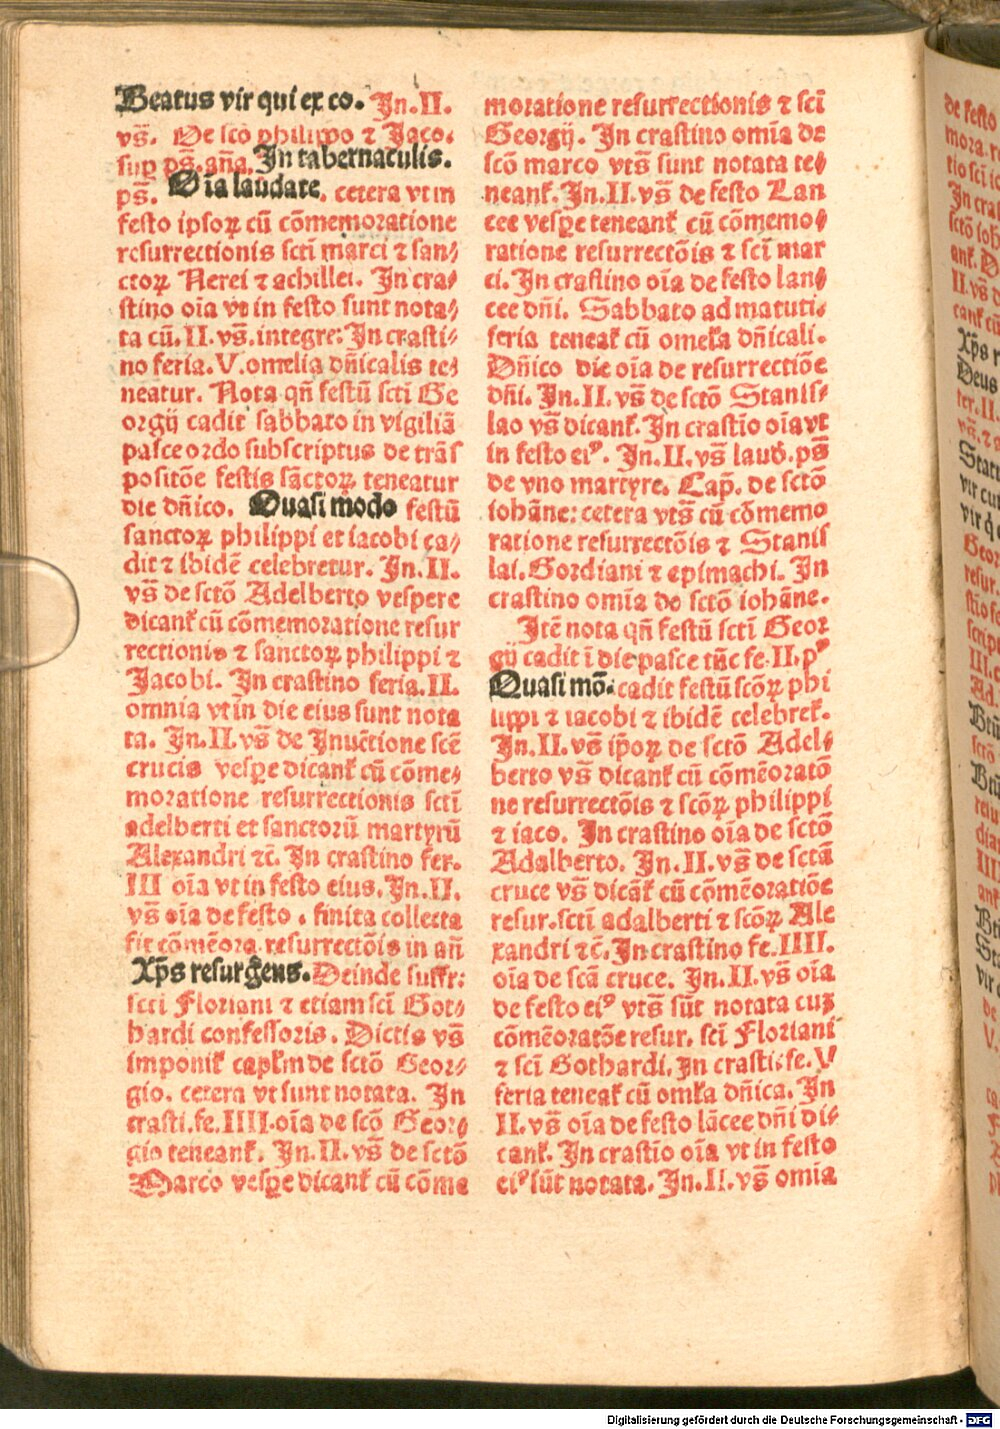 Beatus vir qui ex co. In. II.
vs̄. De scō philippo ⁊ Jaco.
sup ps̄. aña. In tabernaculis.
ps̄. Oīa laudate. cetera vt in
festo ipsoꝝ cū cōmemoratione
resurrectionis sctī marci ⁊ san⸗
ctoꝝ Nerei ⁊ achillei. In cra⸗
stino oīa vt in festo sunt nota⸗
ta cū. II. vs̄. integre: In crasti⸗
no feria. V. omelia dn̄icalis te⸗
neatur. Nota qn̄ festū scti Ge
orgij cadit sabbato in vigiliā
pasce ordo subscriptus de trās
positōe festis sāctoꝝ teneatur
die dn̄ico. Quasi modo festū
sanctoꝝ philippi et iacobi ca⸗
dit ⁊ ibidē celebretur. In. II.
vs̄ de sctō Adelberto vespere
dicanť cū cōmemoratione resur
rectionis ⁊ sanctoꝝ philippi ⁊
Jacobi. In crastino feria. II.
omnia vt in die eius sunt nota
ta. In. II. vs̄ de Inuētione scē
crucis vesꝑe dicanť cū cōme⸗
moratione resurrectionis sctī
adelberti et sanctorū martyrū
Alexandri ⁊c̄. In crastino fer.
III oīa vt in festo eius. In. II.
vs̄ oīa de festo. finita collecta
fit cōmēora. resurrectōis in añ
Xp̄s resurgēns. Deinde suffr:
scti Floriani ⁊ etiam scī Got⸗
hardi confessoris. Dictis vs̄
imponiť capťm de sctō Geor⸗
gio. cetera vt sunt notata. In
crasti. fe. IIII. oīa de scō Geor⸗
gio teneanť. In. II. vs̄ de sctō
Marco vesꝑe dicanť cū cōme
moratione resurrectionis ⁊ scī
Georgij. In crastino omīa de
scō marco vts̄ sunt notata te⸗
neanť. In. II. vs̄ de festo Lan
cee vesꝑe teneanť cū cōmemo⸗
ratione resurrectōis ⁊ scī mar
ci. In crastino oīa de festo lan⸗
cee dn̄i. Sabbato ad matuti.
feria teneať cū omeťa dn̄icali.
Dn̄ico die oīa de resurrectiōe
dn̄i. In. II. vs̄ de sctō Stanis⸗
lao vs̄ dicanť. In crastīo oīa vt
in festo eiꝰ. In. II. vs̄ laud. ps̄
de vno martyre. Cap̄. de sctō
iohāne: cetera vts̄ cū cōmemo
ratione resurrectōis ⁊ Stanis
lai. Gordiani ⁊ epimachi. In
crastino omīa de sctō iohāne.
Itē nota qn̄ festū sctī Geor
gij cadit ī die pasce tūc fe. II. pꝰ
Quasi mō. cadit festū scōꝝ phi
lippi ⁊ iacobi ⁊ ibidē celebreť.
In. II. vs̄ ip̄oꝝ de sctō Adel⸗
berto vs̄ dicanť cū cōmēoratō
ne resurrectōis ⁊ scōꝝ philippi
⁊ iaco. In crastino oīa de sctō
Adalberto. In. II. vs̄ de sctā
cruce vs̄ dicāť cū cōmēoratiōe
resur. sctī adalberti ⁊ scōꝝ Ale
xandri ⁊c̄. In crastino fe. IIII.
oīa de scā cruce. In. II. vs̄ oīa
de festo eiꝰ vts̄ sūt notata cuꝫ
cōmēoratōe resur. scī Floriani
⁊ scī Gothardi. In crasti. fe. V
feria teneať cū omťa dn̄ica. In
II. vs̄ oīa de festo lācee dn̄i di⸗
canť. In crastīo oīa vt in festo
eiꝰ sūt notata. In. II. vs̄ omīa
Digitalisierung gefördert durch die Deutsche Forschungsgemeinschaft - DFG